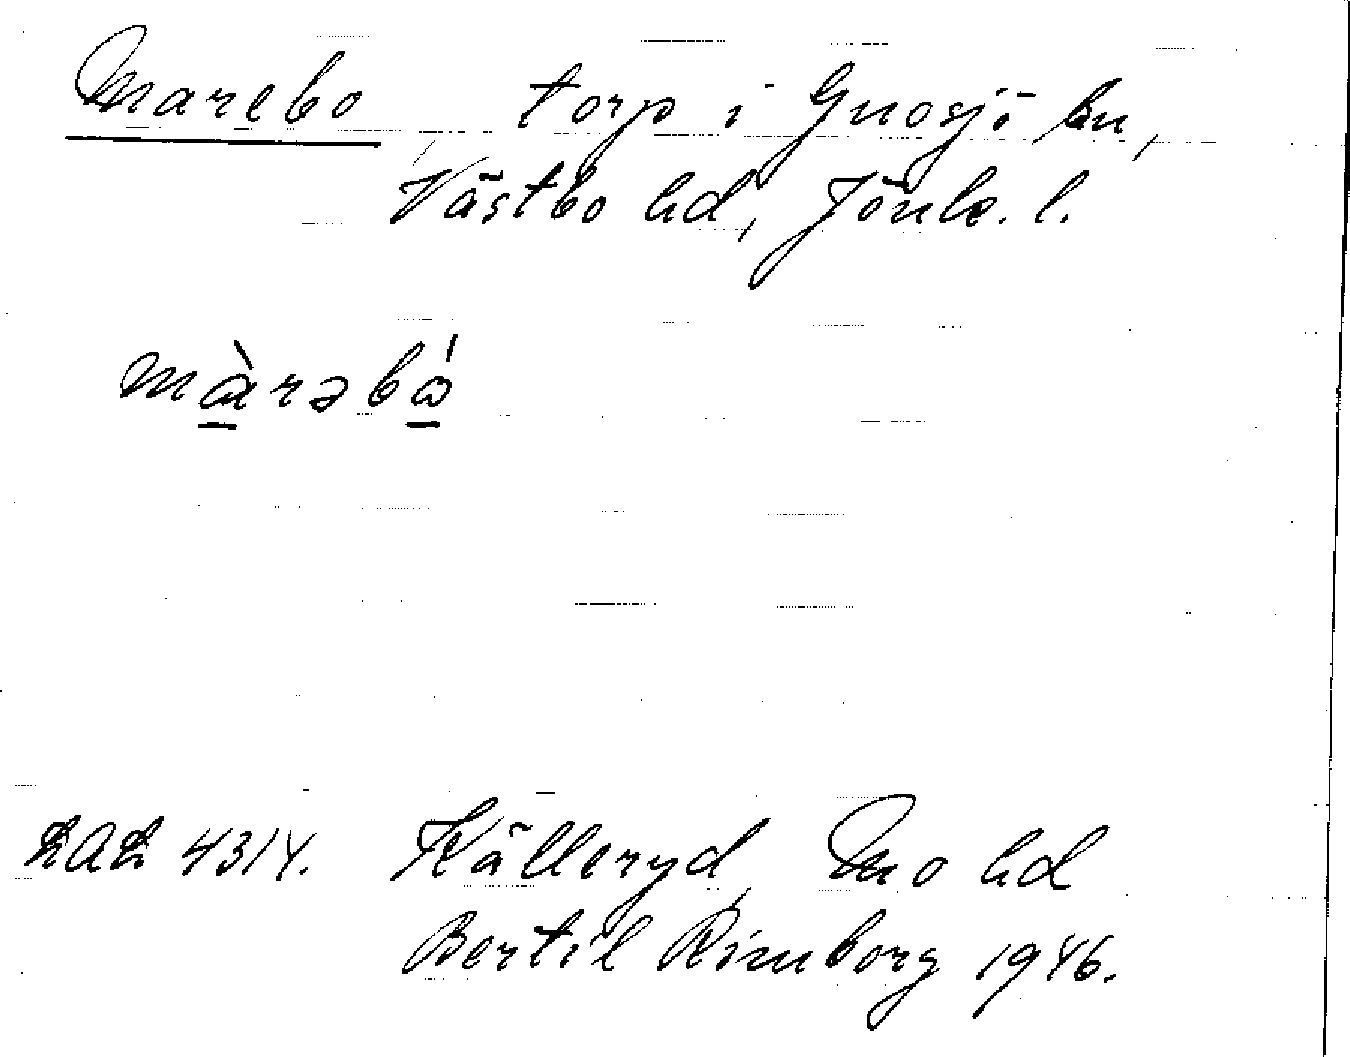 Marebo, torp i Gnosjö kn,
Västbo hd, Jönk. l.
màrəbó
LAL 4314. Källeryd, Mo hd
Bertil Rimborg 1946.